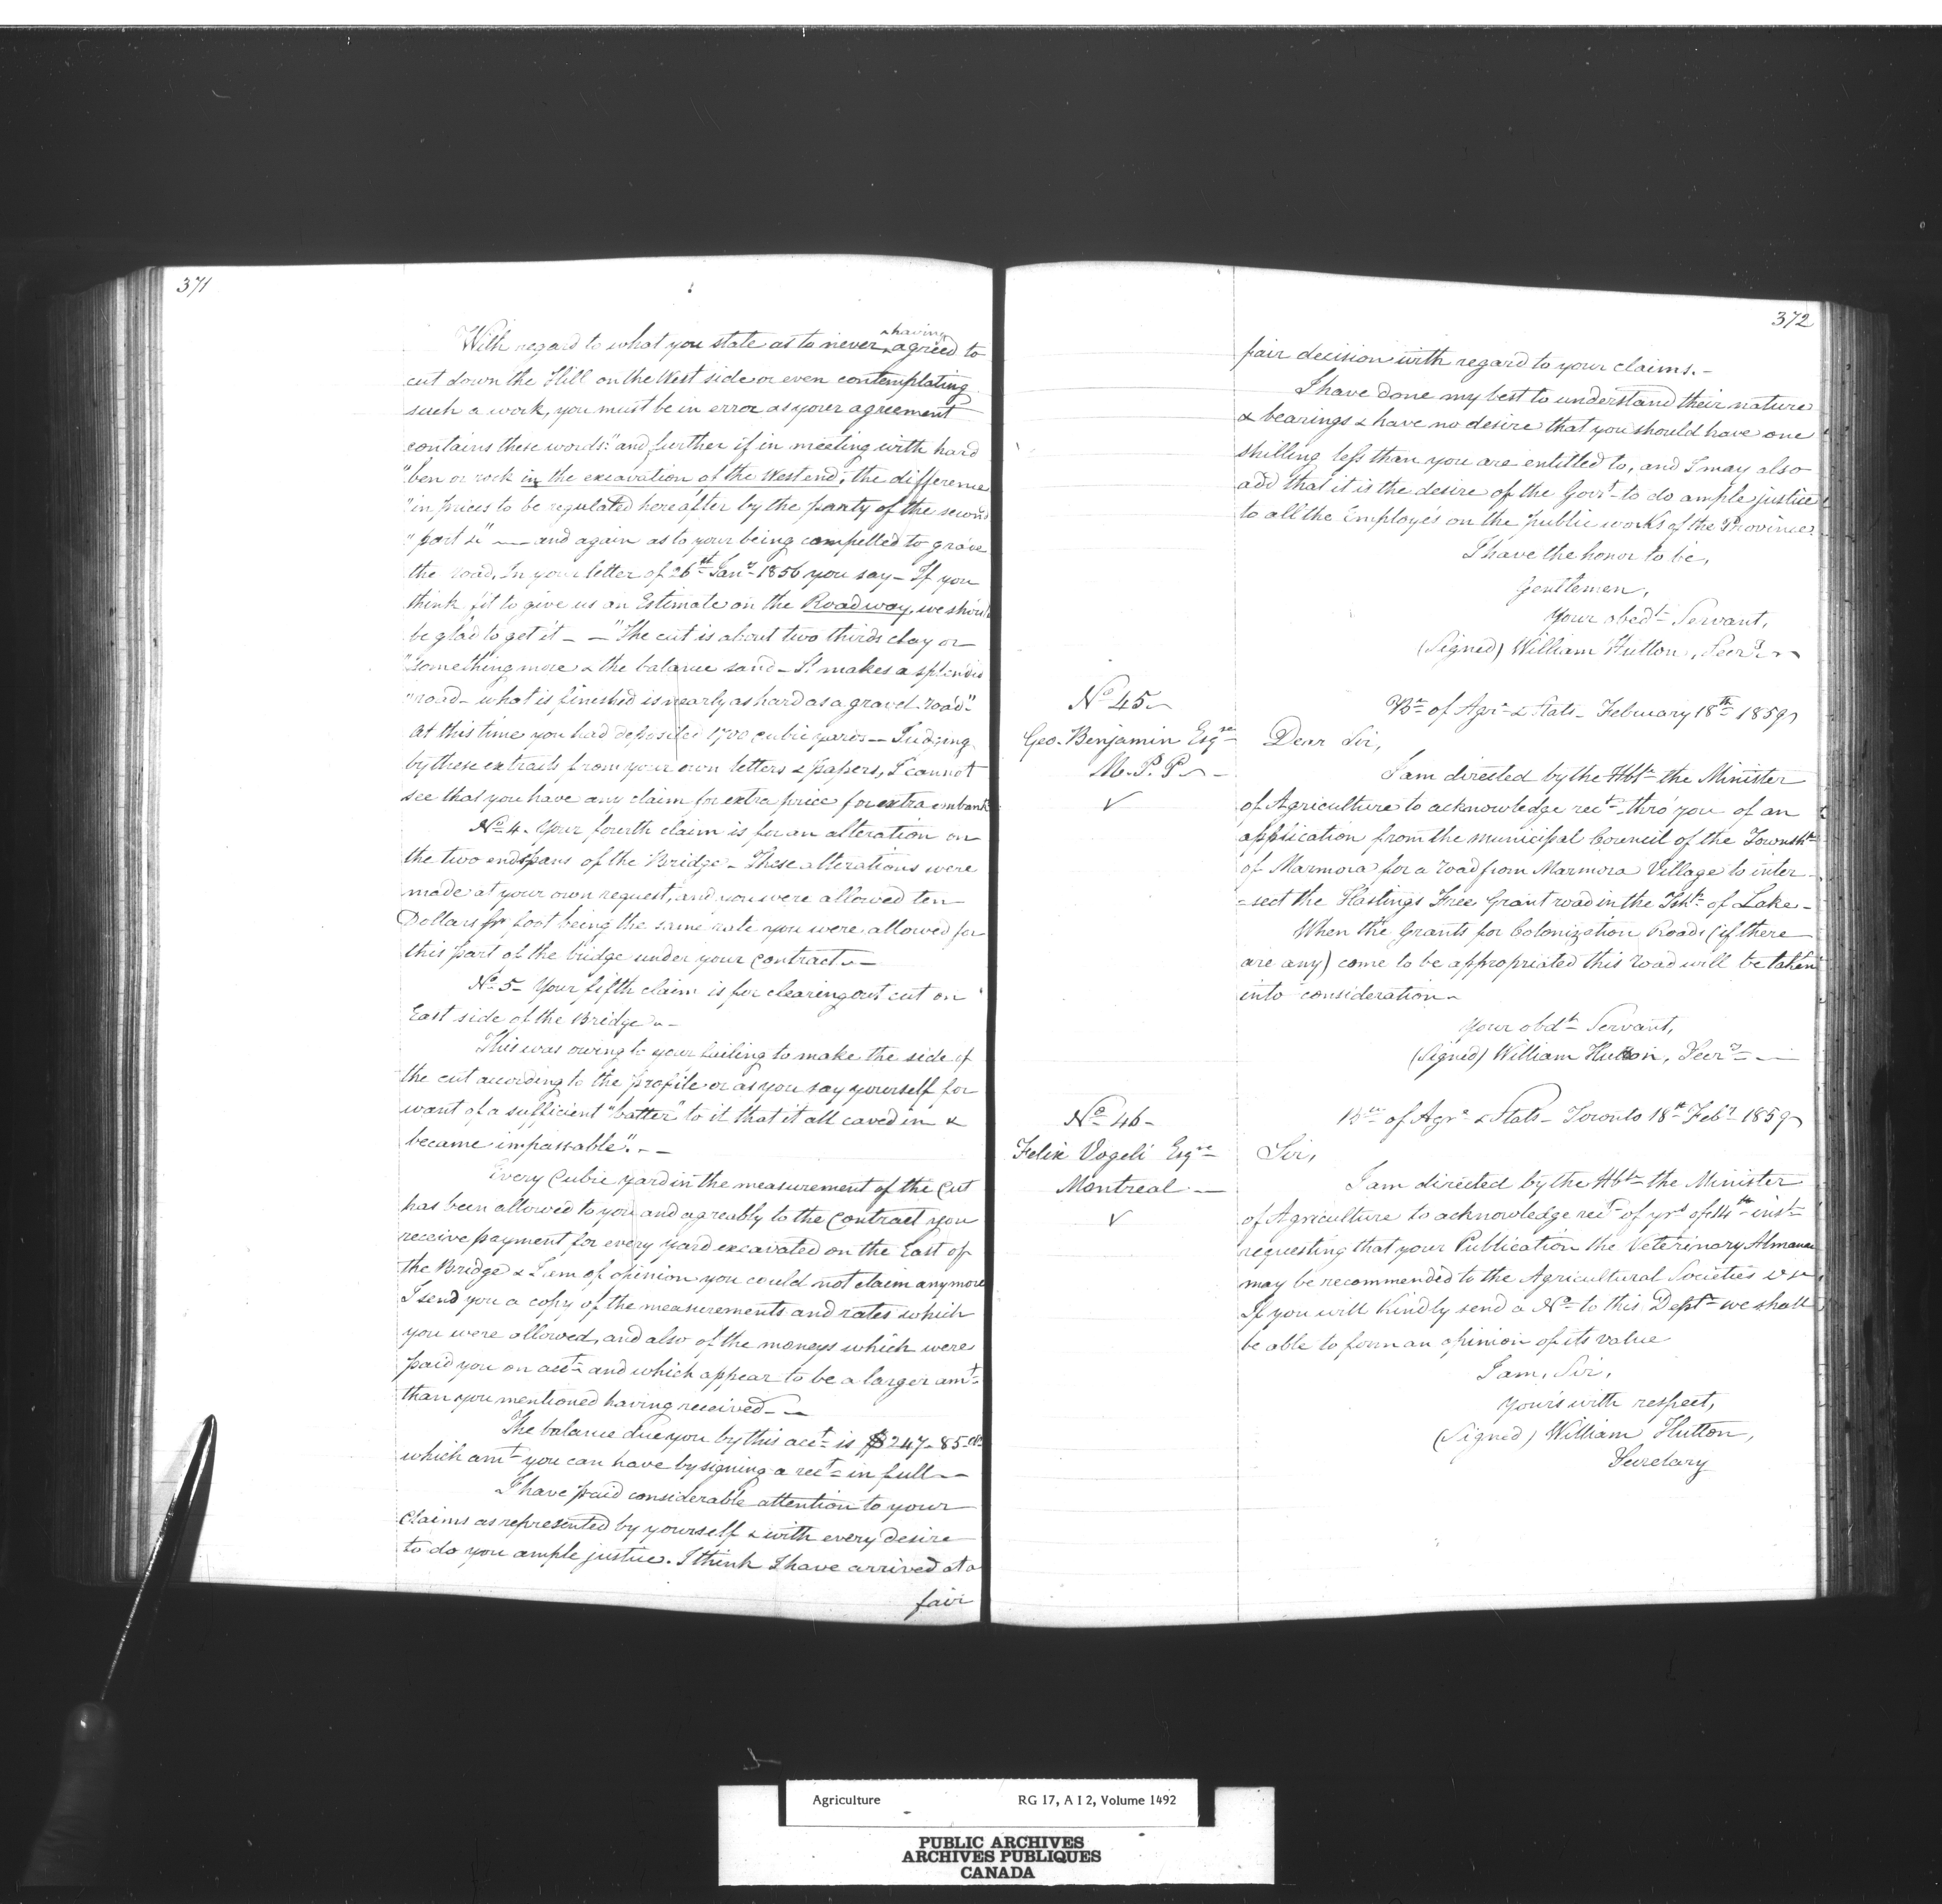 371
With regard to what you state as to never ^having agreed to
cut down the Hill on the West side or even contemplating
such a work, you must be in error as your agreement
contains these words: "and further if in meeting with hard
"pen or rock in the excavation of the West end, the difference
"in prices to be regulated hereafter by the party of the second
"part &" — and again as to your being compelled to grave
the road, In your letter of 26th Jany 1856 you say - If you
think fit to give us an Estimate on the Roadway, we should
be glad to get it - - "The cut is about two thirds clay or
"something more & the balance sand - It makes a splendid
"road - what is finished is nearly as hard as a gravel road"
At this time you had deposited 1700 cubic yards - Judging
by these extracts from your own letters & papers, I cannot
see that you have any claim for extra price for extra embank
No 4. Your fourth claim is for an alteration on
the two end spans of the Bridge - These alterations were
made at your own request, and you were allowed ten
Dollars pr foot being the same rate you were allowed for
this part of the bridge under your contract -
No 5 - Your fifth claim is for clearing out cut on
East side of the Bridge -
This was owing to your failing to make the side of
the cut according to the profile or as you say yourself for
want of a sufficient "batter" to it that it all caved in &
became impassable". - -
Every Cubic yard in the measurement of the Cut
has been allowed to you and agreably to the Contract you
receive payment for every yard excavated on the East of
the Bridge & I am of opinion you could not claim any more
I send you a copy of the measurements and rates which
you were allowed, and also of the moneys which were
paid you on acct and which appear to be a larger amt
than you mentioned having received - -
The balance due you by this acct is $247.85 cts
which amt you can have by signing a rect in full -
I have paid considerable attention to your
claims as represented by yourself & with every desire
to do you ample justice. I think I have arrived at a
fair
372
fair decision with regard to your claims. -
I have done my best to understand their nature
& bearings & have no desire that you should have one
shilling less than you are entitled to, and I may also
add that it is the desire of the Govt to do ample justice
to all the Employés on the public works of the Province.
I have the honor to be,
Gentlemen,
Your obedt Servant,
(Signed) William Hutton, Secry
No 45
Geo. Benjamin Esqre
M. P. P.
✓
Bu of Agr & Stats - February 18th 1859
Dear Sir,
I am directed by the Hble the Minister
of Agriculture to acknowledge rect thro' you of an
application from the Municipal Council of the Townshp
of Marmora for a road from Marmora Village to inter
=sect the Hastings Free Grant road in the Tshp of Lake -
When the Grants for Colonization Roads (if there
are any) come to be appropriated this road will be taken
into consideration -
Your obdt Servant,
(Signed) William Hutton, Secry
No 46 -
Felix Vogeli Esqre
Montreal -
✓
Bu of Agr & Stats - Toronto 18th Feby 1859
Sir,
I am directed by the Hble the Minister
of Agriculture to acknowledge rect of yrs of 14th inst
requesting that your Publication the Veterinary Almanac
may be recommended to the Agricultural Societies &c
If you will kindly send a No to this Dept we shall
be able to form an opinion of its value
I am, Sir,
Yours with respect,
(Signed) William Hutton,
Secretary
Agriculture RG 17, A I 2, Volume 1492
PUBLIC ARCHIVES
ARCHIVES PUBLIQUES
CANADA